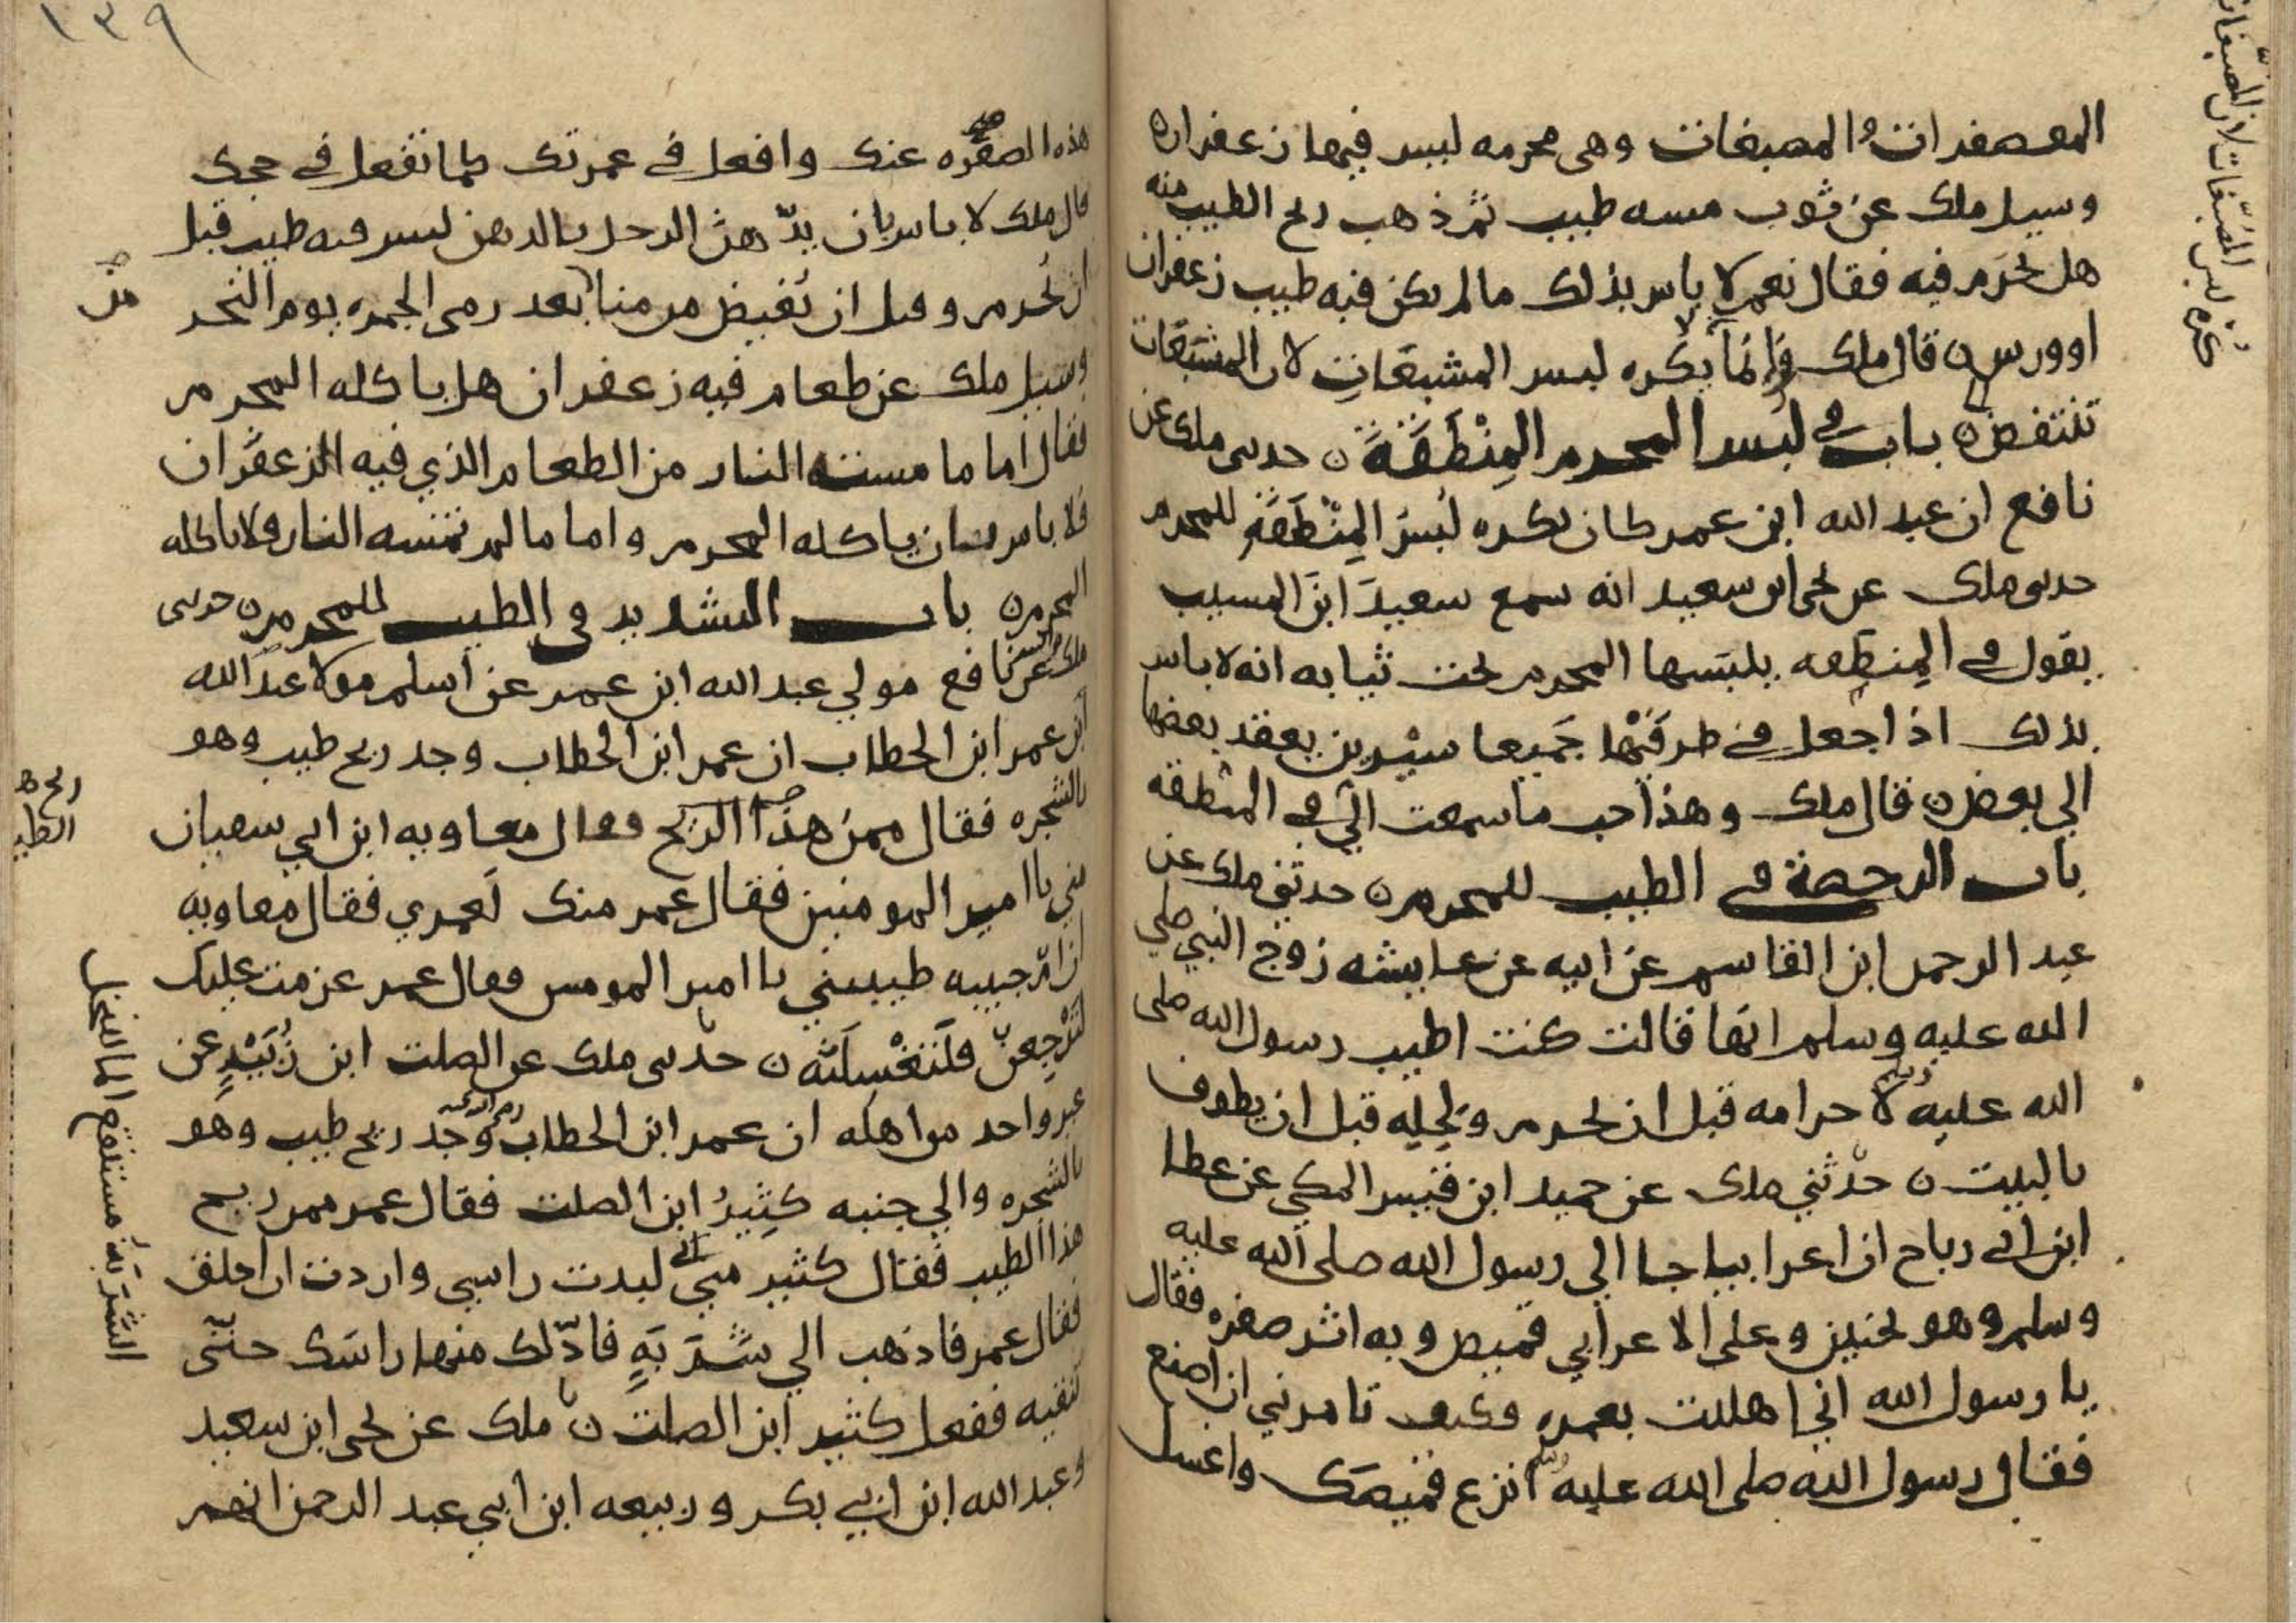 المعصفرات والمصبغات وهي محرمه ليس فيها زعفران ه
وسيل ملك عن ثوب مسه طيب ثم ذهب ريح الطيب منه
هل يحرم فيه فقال نعم لا باس بذلك ما لم يكن فيه طيب زعفران
او ورس ن قال ملك وانما يكره لبس المشبعات لان المشبعات
تنتفض ن باب في لبس المحرم المنطقة ن حدثني ملك عن
نافع ان عبد الله ابن عمر كان يكره لبس المنطقة للمحرم
حدثني ملك عن يحيى ابن سعيد انه سمع سعيد ابن المسيب
يقول في المنطقه يلبسها المحرم تحت ثيابه انه لا باس
بذلك اذا جعل في طرفيها جميعا سيرين يعقد بعضها
الي بعض ن قال ملك وهذا احب ما سمعت الي في المنطقه
باب الرخصة في الطيب للمحرم ن حدثني ملك عن
عبد الرحمن ابن القاسم عن ابيه عن عايشه زوج النبي صلي
الله عليه وسلم انها قالت كنت اطيب رسول الله صلى
الله عليه وسلم لاحرامه قبل ان يحرم ولحله قبل ان يطوف
بالبيت ن حدثني ملك عن حميد ابن قيس المكي عن عطا
ابن ابي رباح ان اعرابيا جا الي رسول الله صلى الله عليه
وسلم وهو بحنين وعلى الاعرابي قميص وبه اثر صفره فقال
يا رسول الله اني اهللت بعمره فكيف تامرني ان اصنع
فقال رسول الله صلى الله عليه وسلم انزع قميصك واغسل
١٣٩
هذه الصفره عنك وافعل في عمرتك كما تفعل في حجك
قال ملك لا باس بان يدهن الرجل بالدهن ليس فيه طيب قبل
ان يحرم وقبل ان يفيض من منا بعد رمي الجمره يوم النحر
وسيل ملك عن طعام فيه زعفران هل ياكله المحرم
فقال اما ما مسته النار من الطعام الذي فيه الزعفران
فلا باس بان ياكله المحرم واما ما لم تمسه النار فلا ياكله
المحرم ن باب التشديد في الطيب للمحرم ن حدثني
ملك عن نافع مولي عبد الله ابن عمر عن اسلم مولا عبد الله
ابن عمر ابن الخطاب ان عمر ابن الخطاب وجد ريح طيب وهو
بالشجره فقال ممن هذا الريح فقال معاويه ابن ابي سفيان
مني يا امير المومنين فقال عمر منك لعمري فقال معاويه
ان ام حبيبه طيبتني يا امير المومنين فقال عمر عزمت عليك
لترجعن فلتغسلنه ن حدثني ملك عن الصلت ابن زييد عن
غير واحد من اهله ان عمر ابن الخطاب وجد ريح طيب وهو
بالشجره والي جنبه كثير ابن الصلت فقال عمر ممن ريح
هذا الطيب فقال كثير مني لبدت راسي واردت ان احلق
فقال عمر فاذهب الي شربة فادلك منها راسك حتى
تنقيه ففعل كثير ابن الصلت ن ملك عن يحيى ابن سعيد
وعبد الله ابن ابي بكر وربيعه ابن ابي عبد الرحمن انهم
من
ريح ه
الطيب
الشربة مستنقع الما